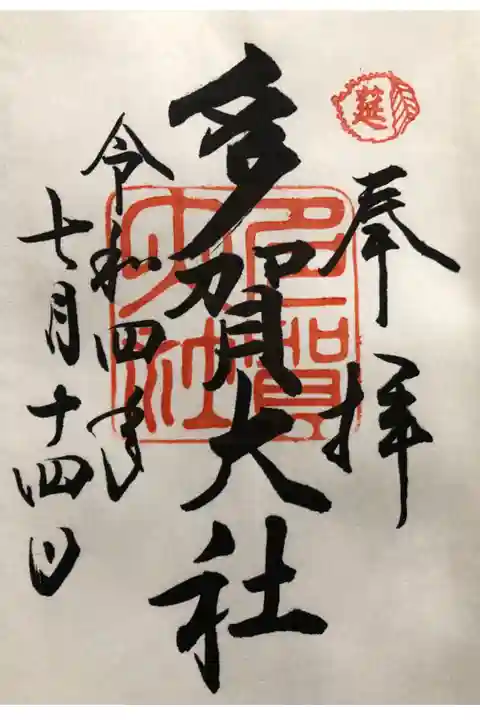 奉拝
莚
多賀大社
多賀大社
令和四年
七月十四日